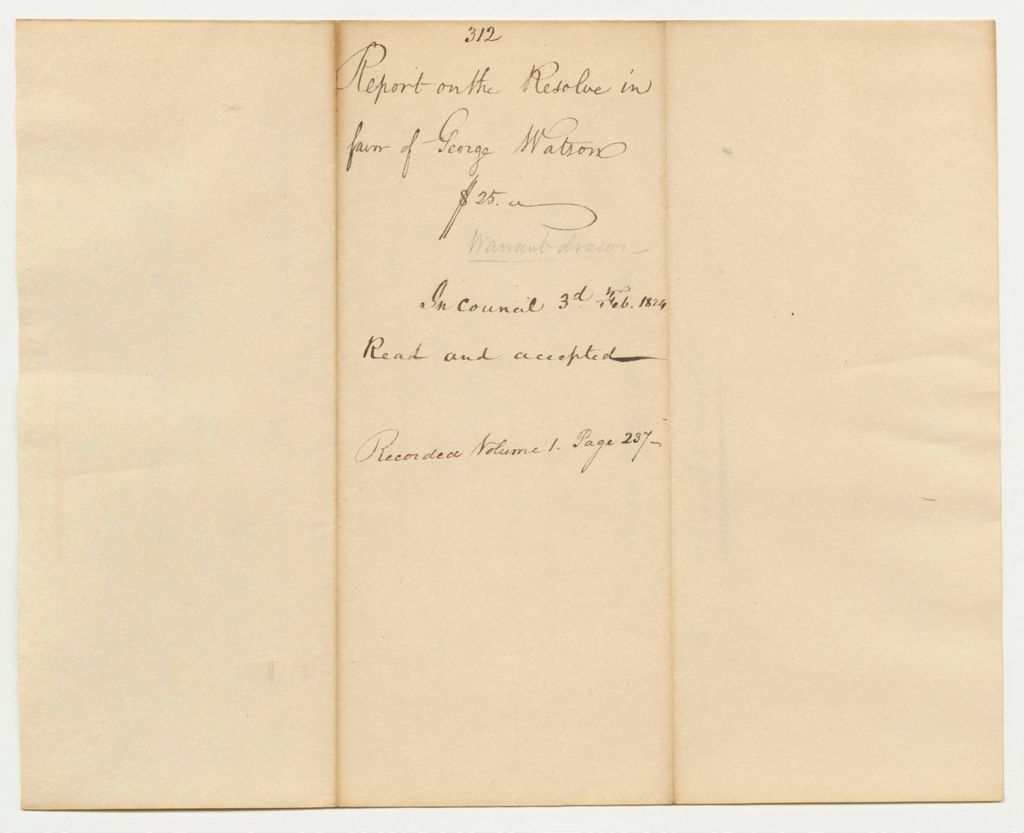 312
Report on the Resolve in
favor of George Watson
$25.
Warrant drawn
In Council 3d Feb. 1824
Read and accepted
Recorded Volume 1. Page 237